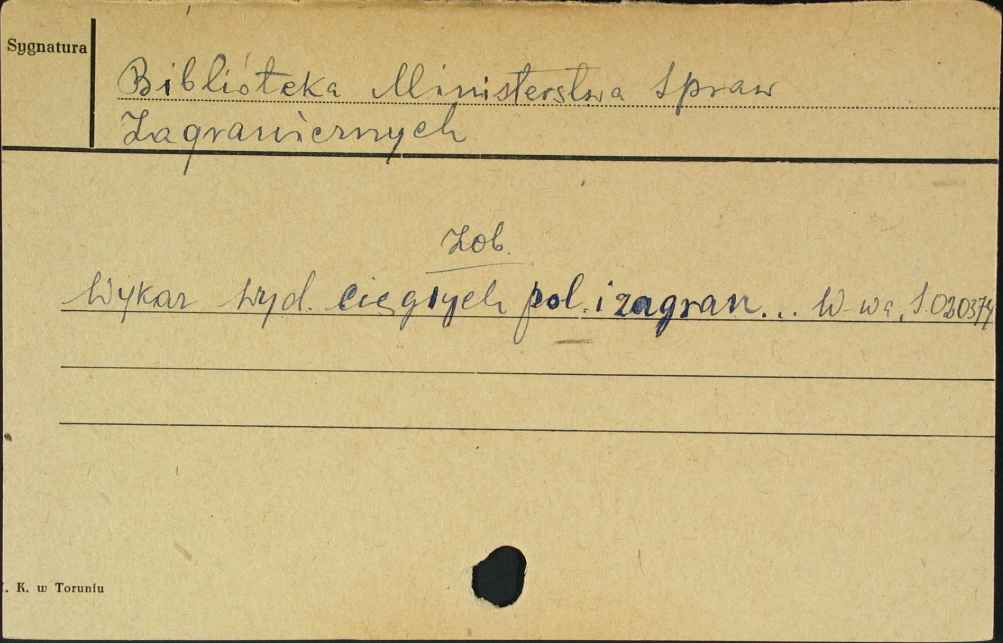 Sygnatura
Biblioteka Ministerstwa Spraw
Zagranicznych
Zob.
Wykaz wyd. ciągłych pol. i zagran... W-wa, S.020374
. K. w Toruniu